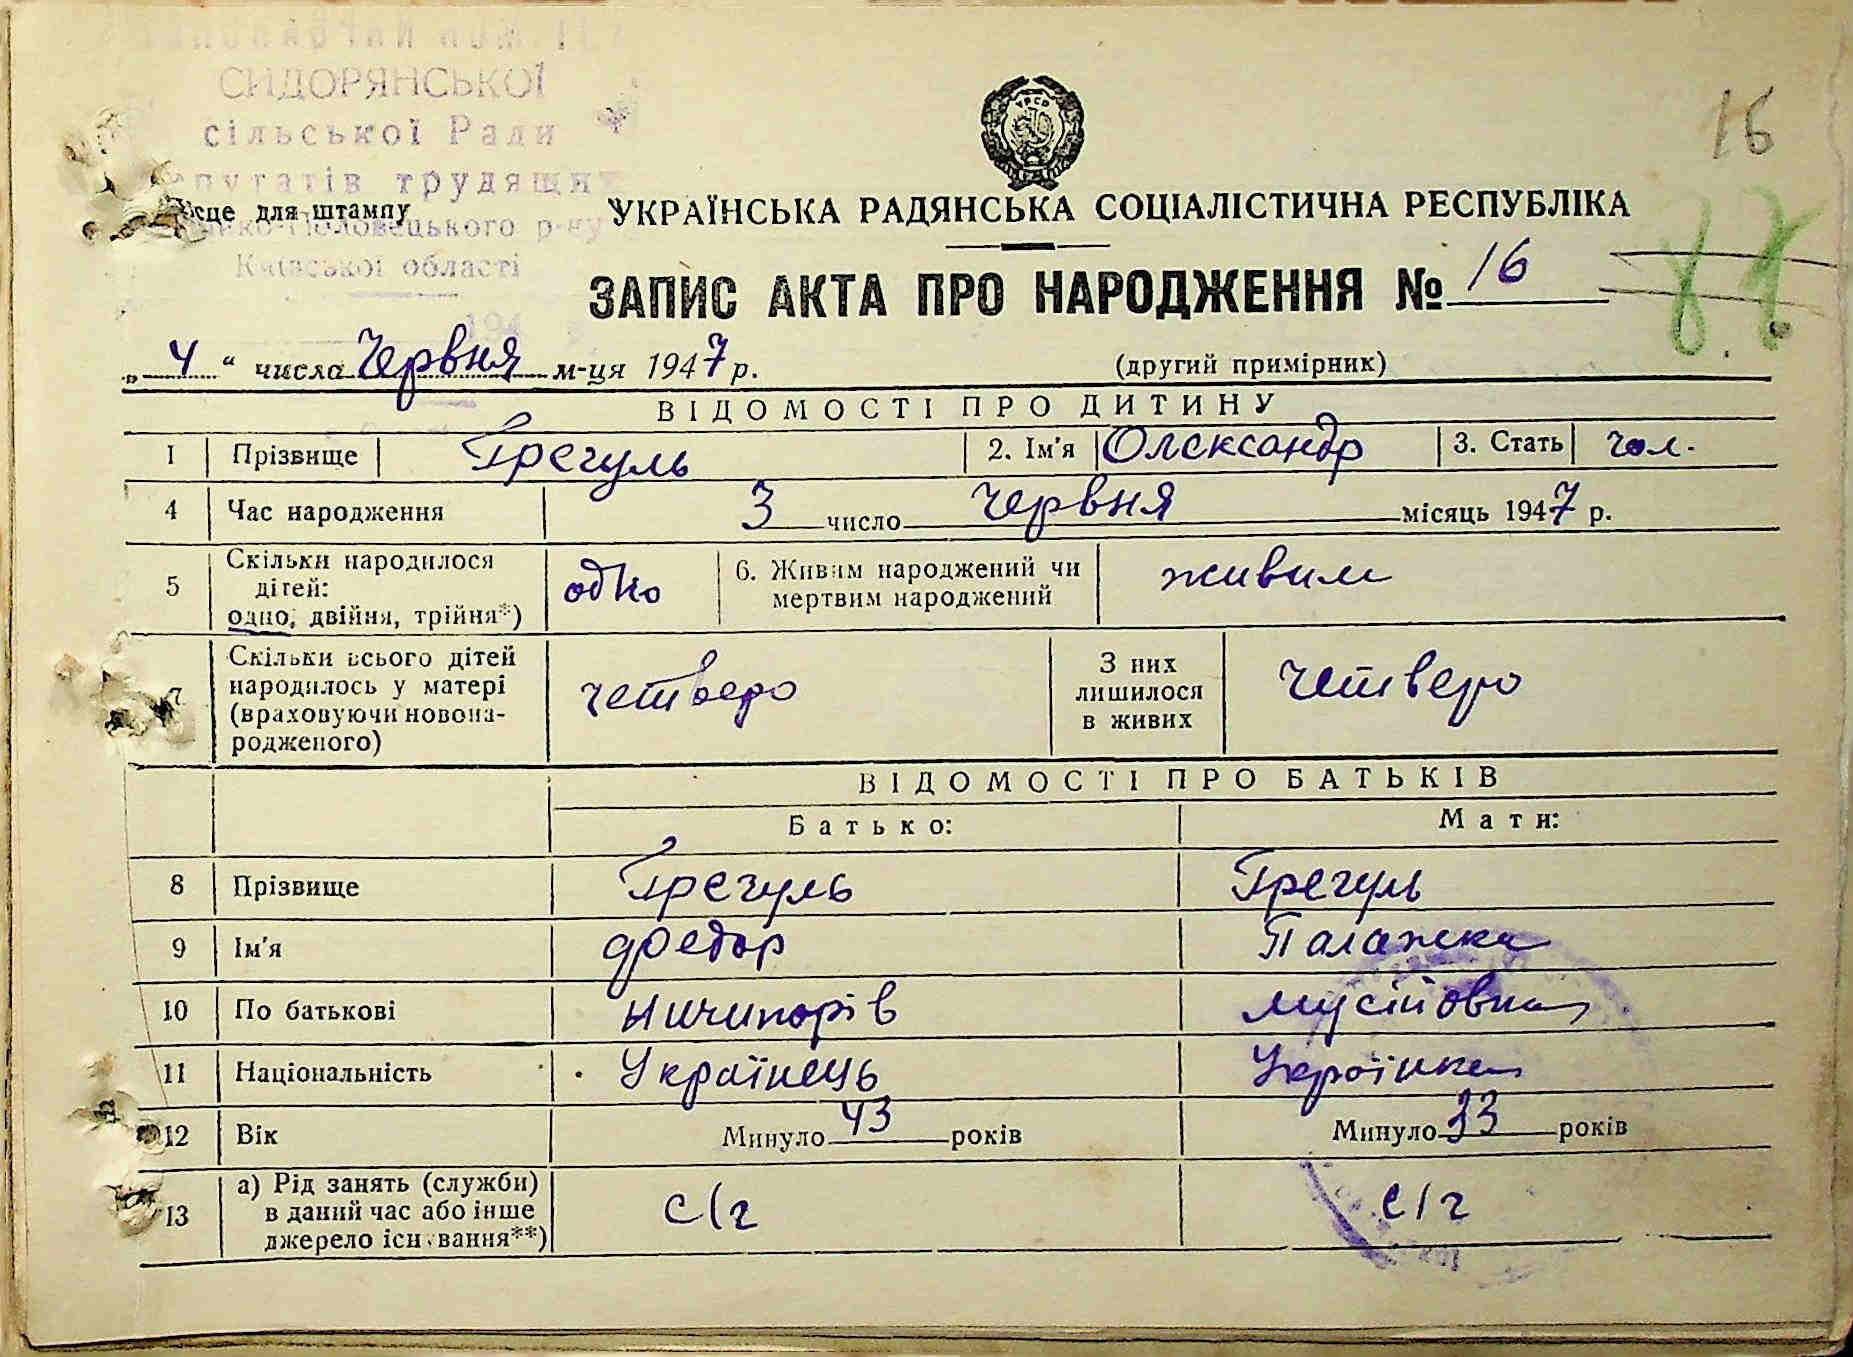 СИДОРЯНСЬКОЇ
сільської Ради
депутатів трудящих
Місце для штампу
Київської області
194
16
УРСР
УКРАЇНСЬКА РАДЯНСЬКА СОЦІАЛІСТИЧНА РЕСПУБЛІКА
ЗАПИС АКТА ПРО НАРОДЖЕННЯ № 16
„ 4 “ числа Червня м-ця 1947 р. (другий примірник)
ВІДОМОСТІ ПРО ДИТИНУ
1 Прізвище Грегуль 2. Ім'я Олександр 3. Стать чол.
4 Час народження 3 число Червня місяць 1947 р.
5 Скільки народилося дітей: одно, двійня, трійня*) одно 6. Живим народжений чи мертвим народжений живим
7 Скільки всього дітей народилось у матері (враховуючи новонародженого) четверо З них лишилося в живих четверо
ВІДОМОСТІ ПРО БАТЬКІВ
Батько: Мати:
8 Прізвище Грегуль Грегуль
9 Ім'я Федор Палажка
10 По батькові Ничипорів Мусійовна
11 Національність Українець Українка
12 Вік Минуло 43 років Минуло 33 років
13 а) Рід занять (служби) в даний час або інше джерело існування**) с/г с/г